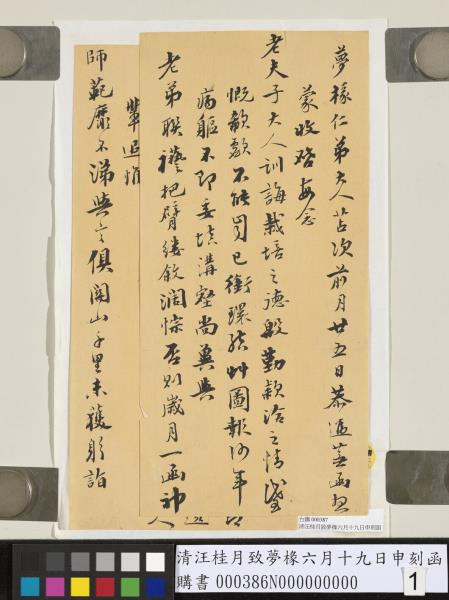 夢椽仁弟大人苫次前月廿五日恭遞蕪函想
蒙收啓每念
老夫子大人訓誨栽培之德殷勤款洽之情感
慨歔欷不能自已銜環結艸圖報何年
病軀不即委填溝壑尚冀與
老弟聯襼把臂縷敘濶悰否則歲月一函神
輩追惟
師範靡不涕與言俱關山千里未獲躬詣
台購 000387
清汪桂月致夢椽六月十九日申刻函
清汪桂月致夢椽六月十九日申刻函
購書 000386N000000000
1